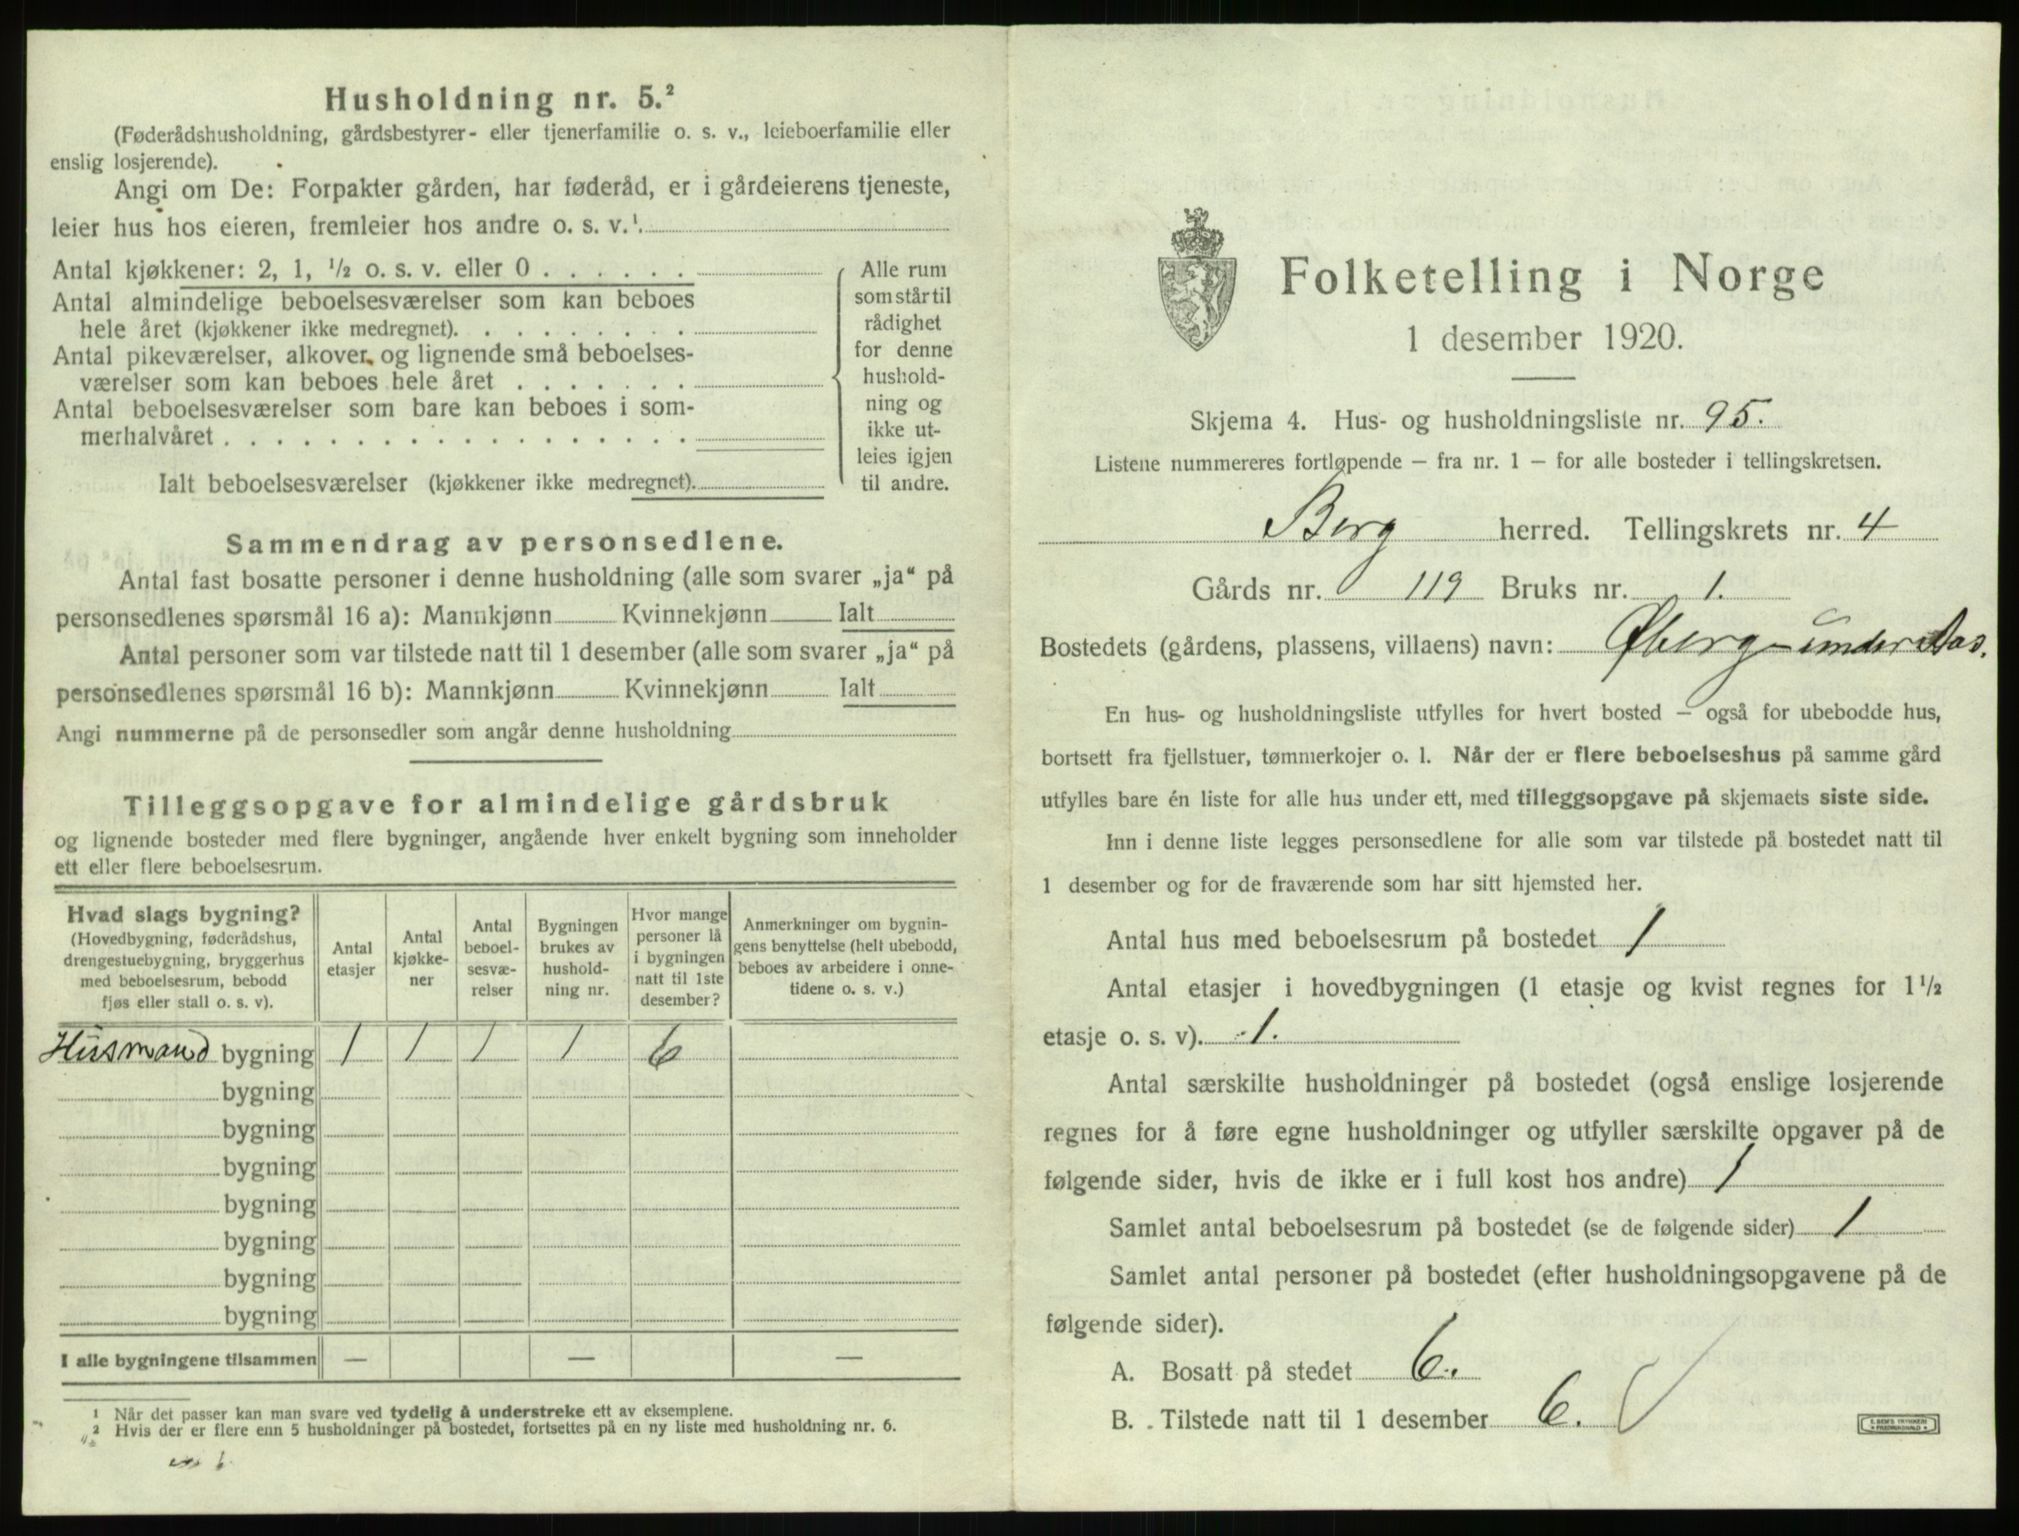 Husholdning nr. 5.²
(Føderådshusholdning, gårdsbestyrer- eller tjenerfamilie o. s. v., leieboerfamilie eller
enslig losjerende).
Angi om De: Forpakter gården, har føderåd, er i gårdeierens tjeneste,
leier hus hos eieren, fremleier hos andre o. s. v.¹.
Antal kjøkkener: 2, 1, ½ o. s. v. eller 0 . . . . . .
Antal almindelige beboelsesværelser som kan beboes
hele året (kjøkkener ikke medregnet). . . . . . . . .
Antal pikeværelser, alkover og lignende små beboelses-
værelser som kan beboes hele året . . . . . . .
Antal beboelsesværelser som bare kan beboes i som-
merhalvåret . . . . . . . . . . . . . . . . . .
Ialt beboelsesværelser (kjøkkener ikke medregnet).
Alle rum
som står til
rådighet
for denne
hushold-
ning og
ikke ut-
leies igjen
til andre.
Sammendrag av personsedlene.
Antal fast bosatte personer i denne husholdning (alle som svarer „ja“ på
personsedlenes spørsmål 16 a): Mannkjønn Kvinnekjønn Ialt
Antal personer som var tilstede natt til 1 desember (alle som svarer „ja“ på
personsedlenes spørsmål 16 b): Mannkjønn Kvinnekjønn Ialt
Angi nummerne på de personsedler som angår denne husholdning
Tilleggsopgave for almindelige gårdsbruk
og lignende bosteder med flere bygninger, angående hver enkelt bygning som inneholder
ett eller flere beboelsesrum.
Hvad slags bygning?
(Hovedbygning, føderådshus,
drengestuebygning, bryggerhus
med beboelsesrum, bebodd
fjøs eller stall o. s. v).
Antal
etasjer
Antal
kjøkke-
ner
Antal
beboel-
sesvæ-
relser
Bygningen
brukes av
hushold-
ning nr.
Hvor mange
personer lå
i bygningen
natt til 1ste
desember?
Anmerkninger om bygnin-
gens benyttelse (helt ubebodd,
beboes av arbeidere i onne-
tidene o. s. v.)
Husmand bygning 1 1 1 1 6
bygning
bygning
bygning
bygning
bygning
bygning
bygning
I alle bygningene tilsammen — — —
¹ Når det passer kan man svare ved tydelig å understreke ett av eksemplene.
² Hvis der er flere enn 5 husholdninger på bostedet, fortsettes på en ny liste med husholdning nr. 6.
Folketelling i Norge
1 desember 1920.
Skjema 4. Hus- og husholdningsliste nr. 95.
Listene nummereres fortløpende — fra nr. 1 — for alle bosteder i tellingskretsen.
Berg herred. Tellingskrets nr. 4
Gårds nr. 119 Bruks nr. 1.
Bostedets (gårdens, plassens, villaens) navn: Øberg - under Aas.
En hus- og husholdningsliste utfylles for hvert bosted — også for ubebodde hus,
bortsett fra fjellstuer, tømmerkojer o. l. Når der er flere beboelseshus på samme gård
utfylles bare én liste for alle hus under ett, med tilleggsopgave på skjemaets siste side.
Inn i denne liste legges personsedlene for alle som var tilstede på bostedet natt til
1 desember og for de fraværende som har sitt hjemsted her.
Antal hus med beboelsesrum på bostedet 1
Antal etasjer i hovedbygningen (1 etasje og kvist regnes for 1½
etasje o. s. v). 1.
Antal særskilte husholdninger på bostedet (også enslige losjerende
regnes for å føre egne husholdninger og utfyller særskilte opgaver på de
følgende sider, hvis de ikke er i full kost hos andre) 1
Samlet antal beboelsesrum på bostedet (se de følgende sider) 1
Samlet antal personer på bostedet (efter husholdningsopgavene på de
følgende sider).
A. Bosatt på stedet 6.
B. Tilstede natt til 1 desember 6.